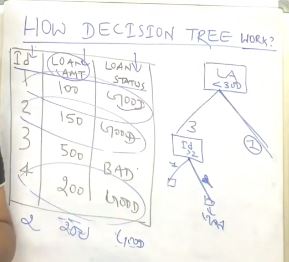 HOW DECISION TREE WORK?
Id LOAN AMT LOAN STATUS
1 100 GOOD
2 150 GOOD
3 500 BAD
4 200 GOOD
2 200 GOOD
LA
<300
3 1
Id
1